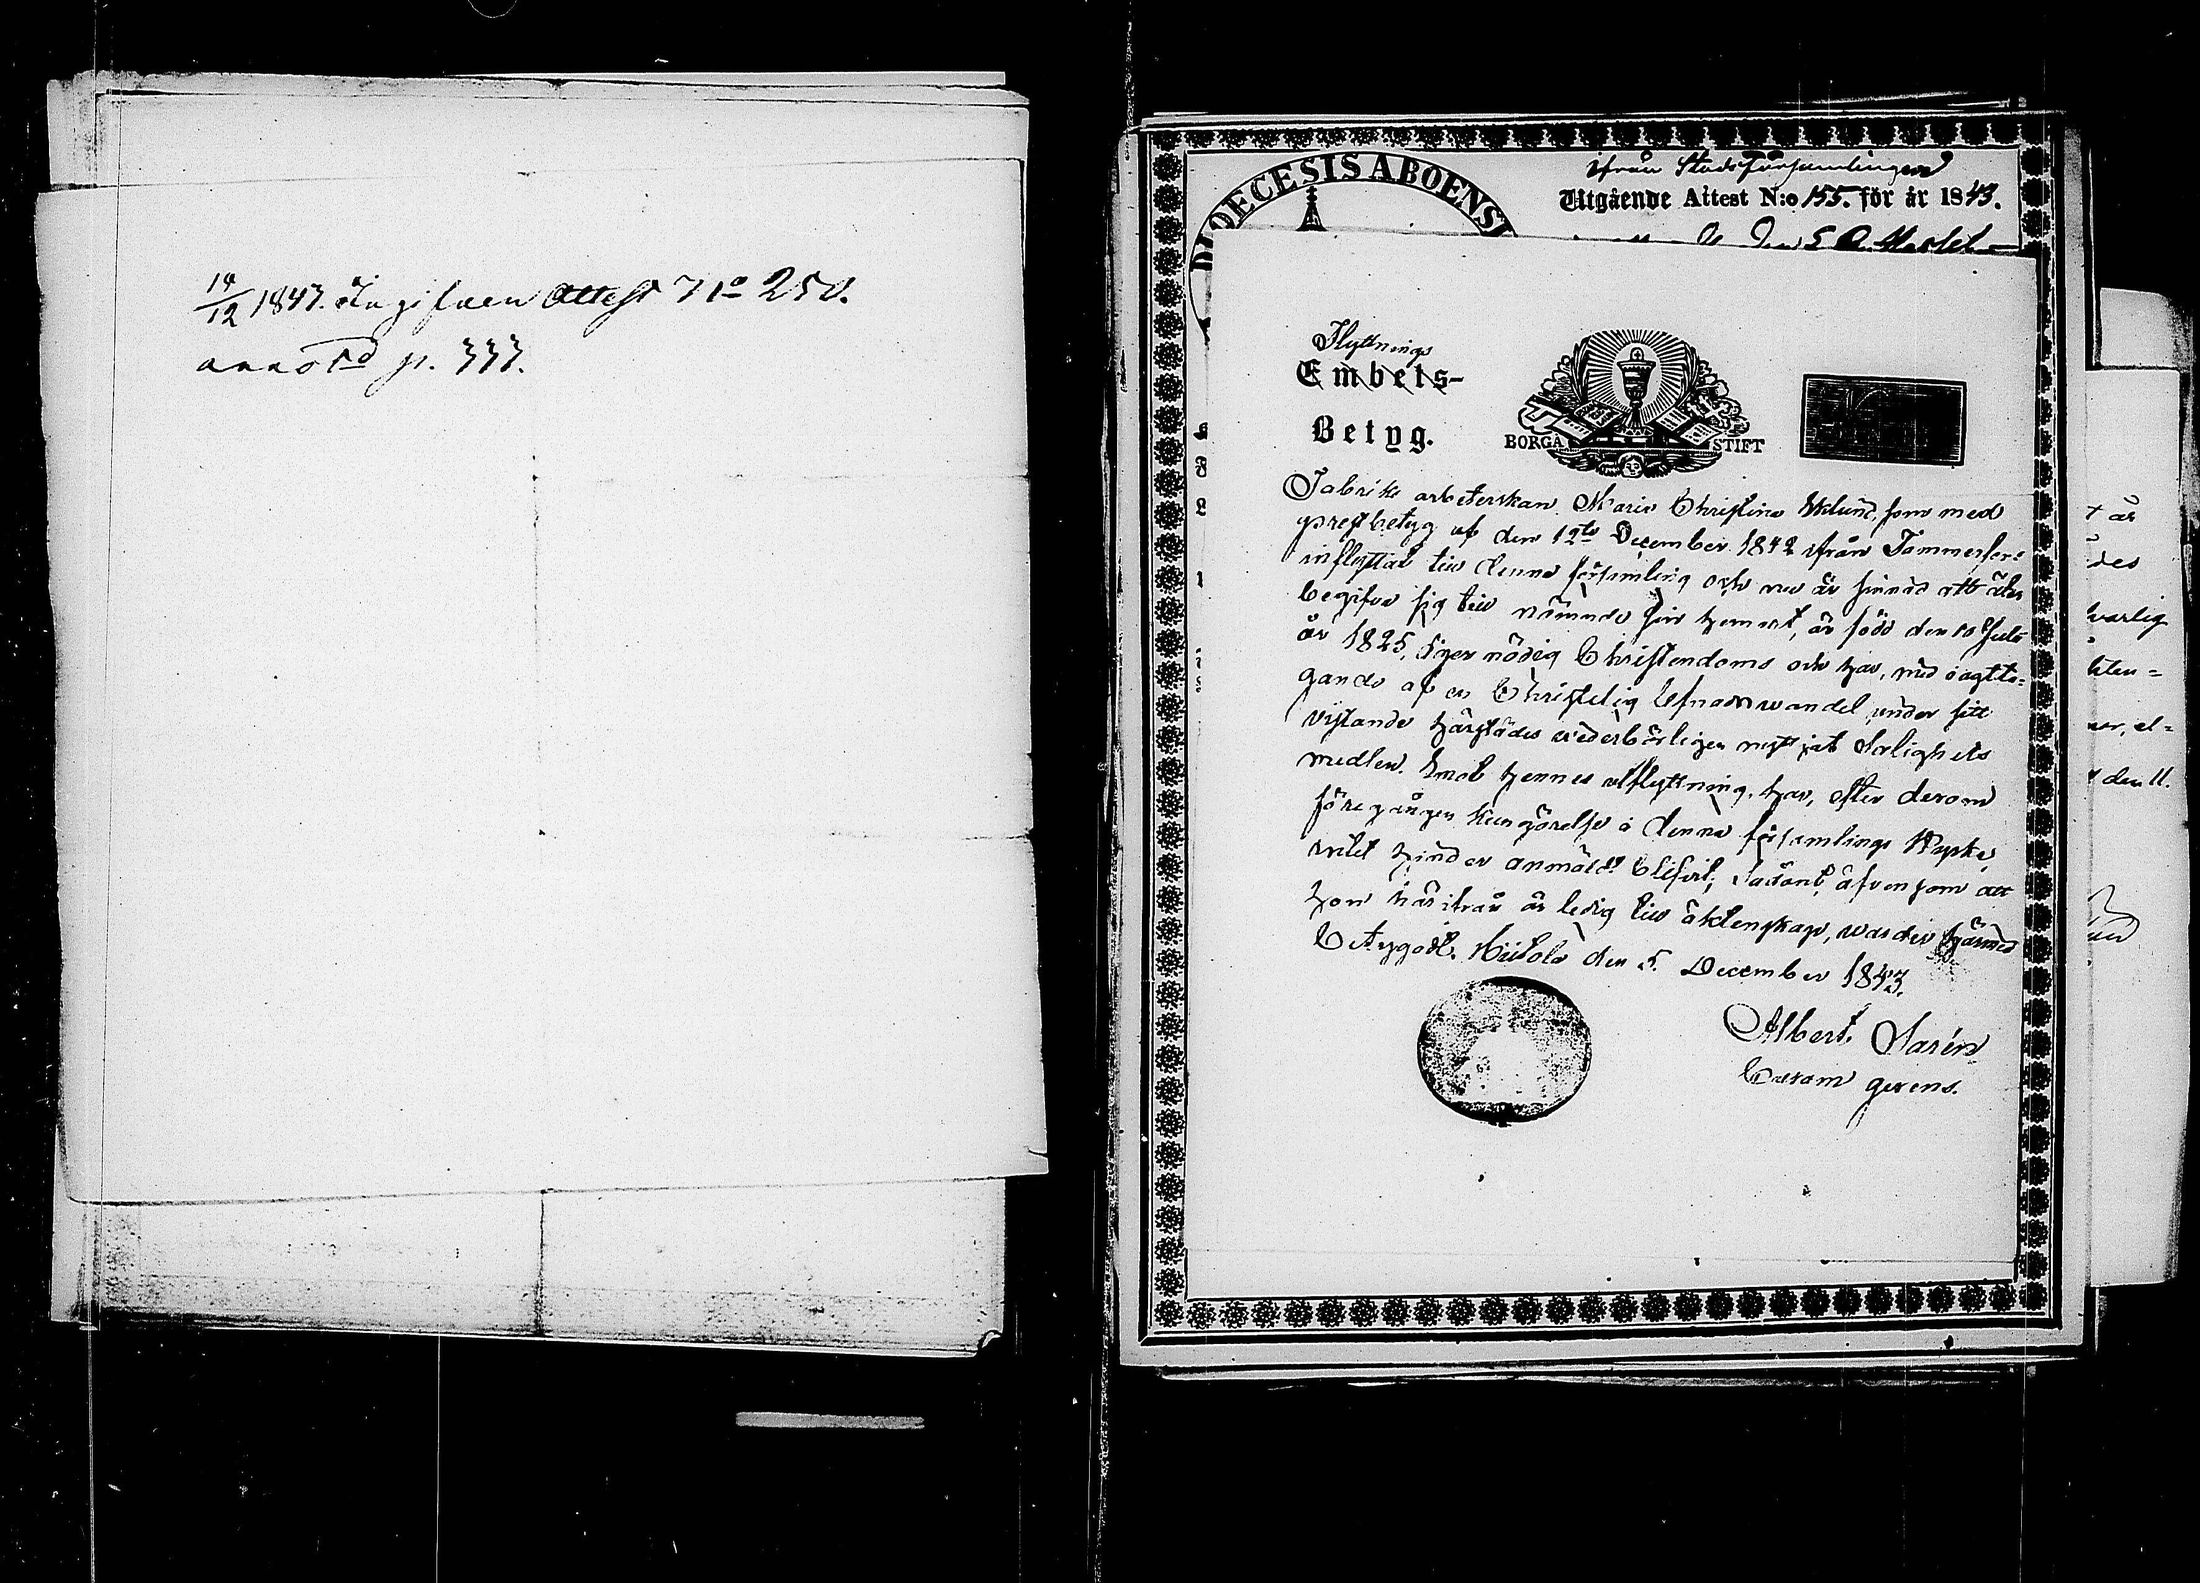 14/12 1843. Ingifven Attest No 250.
annoterd p. 333.
DIOECESIS ABOENSI
ifrån Stadsförsamlingen
Utgående Attest N:o 155. för år 1843.
Flyttnings
Embets-
Betyg.
BORGÅ STIFT
Fabriks arbeterskan Maria Christina Eklund, som med
prestbetyg af den 12te December 1842 ifrån Tammerfors
inflyttat till denna församling och nu är sinnad att åter
begifva sig till nämnde sin hemort, är född den 10 Julii
år 1825, äger nödig Christendoms och har, med iagtta-
gande af en Christelig lefnadswandel under sitt
vistande härstädes wederbörligen nyttjat Salighets
medlen. Emot hennes utflyttning, har, efter derom
föregången kungörelse i denna församlings Kyrka,
intet hinder anmäldt blifvit; Sådant, äfvensom att
hon härifrån är ledig till äktenskap, warder härmed
betygadt. Hiitola den 5. December 1843.
Albert Sarén
Curam gerens.
t är
des
varlig
den 11.